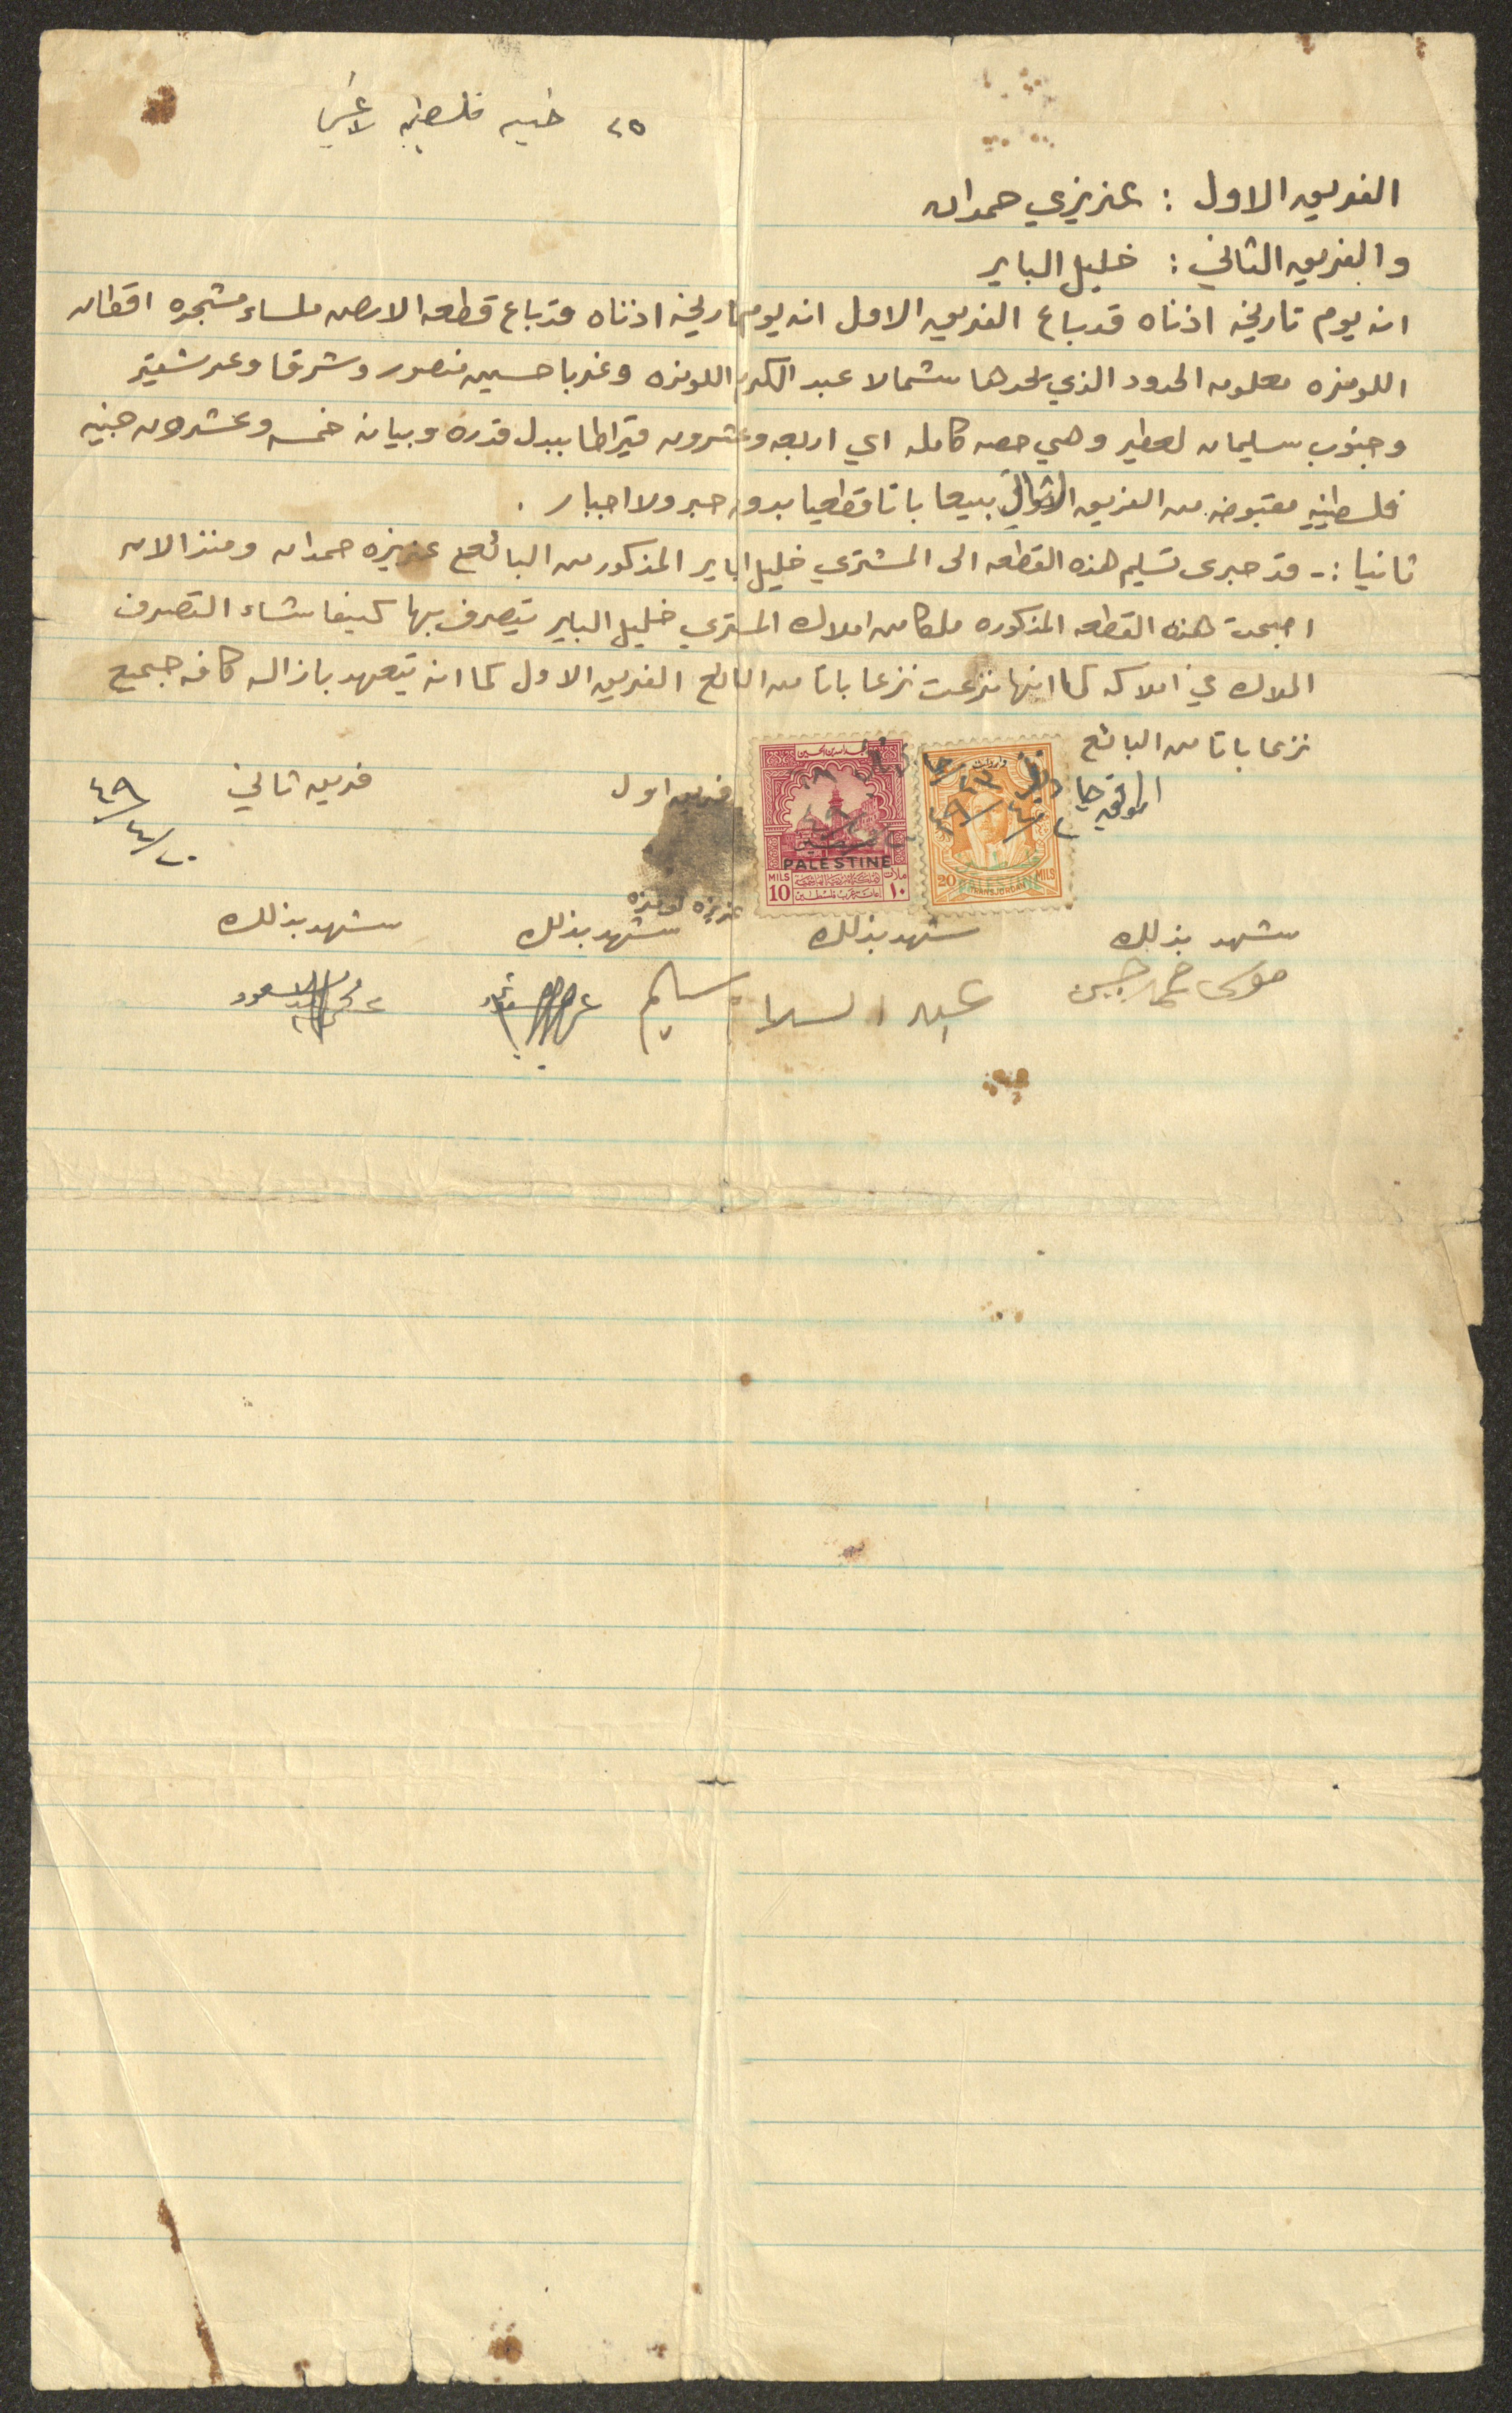 ٢٥ جنيه فلسطيني لاغير
الفريق الاول : عزيزي حمدان
والفريق الثاني : خليل الباير
انه يوم تاريخه ادناه قد باع الفريق الاول انه يوم تاريخه ادناه قد باع قطعه الارض ملساء مشجره اقطان
اللوزه معلومه الحدود الذي يحدها شمالا عبد الكريم اللوزه وغربا حسين منصور وشرقا وعر شقير
وجنوب سليمان لعطير وهي حصه كامله اي اربعه وعشرون قيراطا ببدل قدره وبيانه خمسه وعشرون جنيه
فلسطينيه مقبوضه من الفريق الثاني بيعا باتا قطعيا بدون جبر ولا اجبار .
ثانيا :ـ قد جرى تسليم هذه القطعه الى المشتري خليل اباير المذكور من البائع عزيزه حمدان ومنذ الان
اصبحت هذه القطعه المذكوره ملكا من املاك المشتري خليل الباير يتصرف بها كيفما شاء التصرف
الملاك في املاكه كما انها نزعت نزعا باتا من البائع الفريق الاول كما انه يتعهد بازاله كافه جميع
نزعا باتا من البائع
فريق اول
فريق ثاني
٢٠/٤/٤٩
PALESTINE
MILS 10 ١٠ ملات
PALESTINE
20 TRANSJORDAN MILS
عزيزه لوزه
شهد بذلك
شهد بذلك
شهد بذلك
شهد بذلك
موسى حمد حسين
عبد السلام سليم